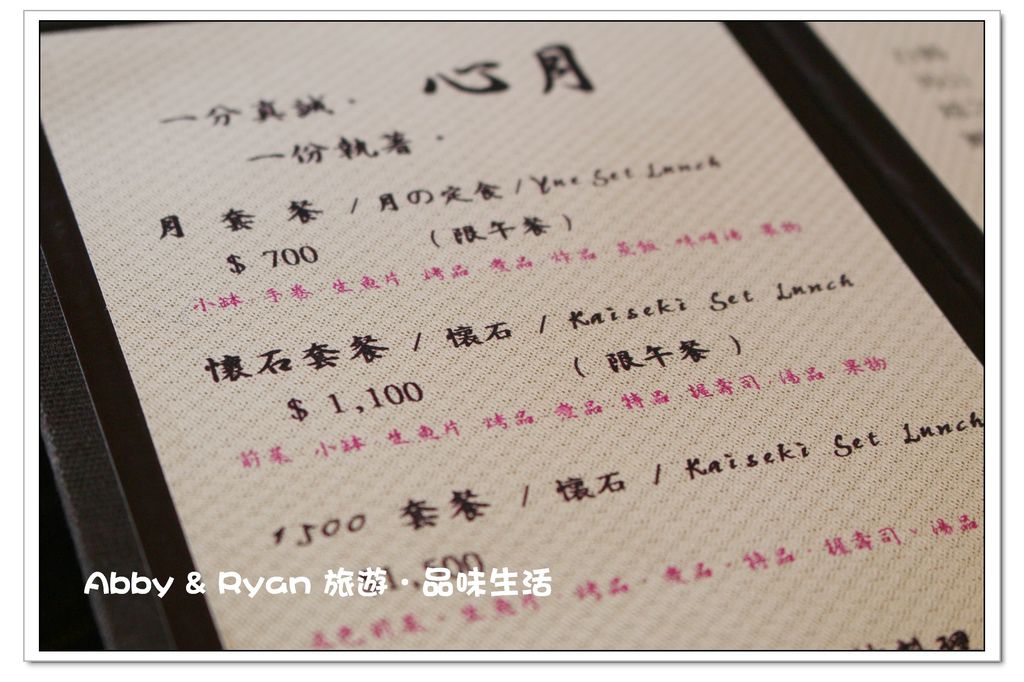 心月
一分真誠．
一份執著．
月 套 餐 / 月の定食 / Yue Set Lunch
$ 700 ( 限午餐 )
小缽 手卷 生魚片 烤品 煮品 炸品 蒸飯 味噌湯 果物
懷石套餐 / 懷石 / Kaiseki Set Lunch
$ 1,100 ( 限午餐 )
前菜 小缽 生魚片 烤品 煮品 特品 握壽司 湯品 果物
1500 套餐 / 懷石 / Kaiseki Set Lunch
1,500
前菜．生魚片．烤品．煮品．特品．握壽司．湯品
料理
Abby & Ryan 旅遊．品味生活